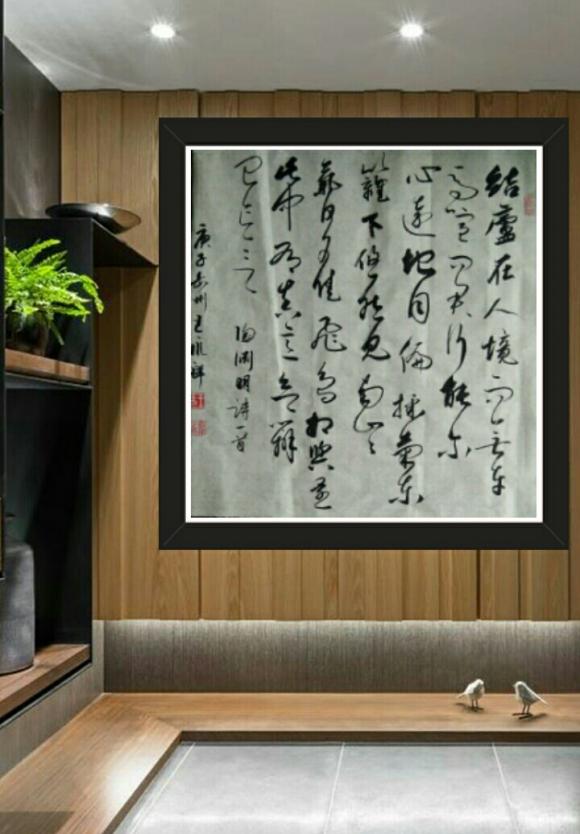 结廬在人境而无车
马喧问君何能尔
心遠地自偏採菊东
籬下悠然见南山々
氣日夕佳飛鸟相與還
此中有真意欲辨
已忘言 陶渊明诗一首
庚子